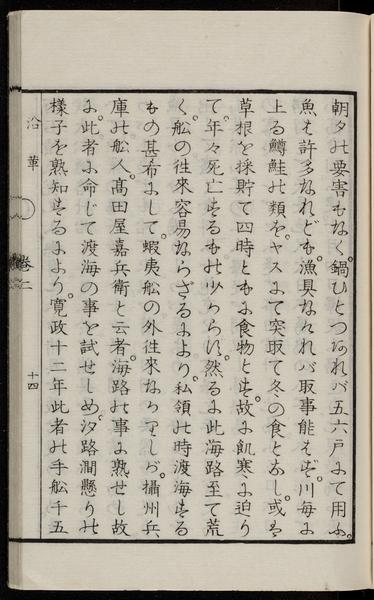 朝夕の要害もなく。鍋ひとつあれバ五六戸にて用ふ。
魚は許多なれども。漁具なけれバ取事能はず。川毎に
上る鱒鮭の類を。ヤスにて突取て冬の食となし。或は
草根を採貯て四時ともに食物とす。故に飢寒に迫り
て。年々死亡するもの少からず。然るに此海路至て荒
く。舩の往來容易ならざるより。私領の時渡海する
もの甚希にして。蝦夷舩の外往來なかりしが。攝州兵
庫の舩人。髙田屋嘉兵衛と云者。海路の事に熟せし故
に。此者に命じて渡海の事を試せしめ。汐路澗懸りの
樣子を熟知するにより。寛政十二年此者の手舩千五
沿革
卷二
十四